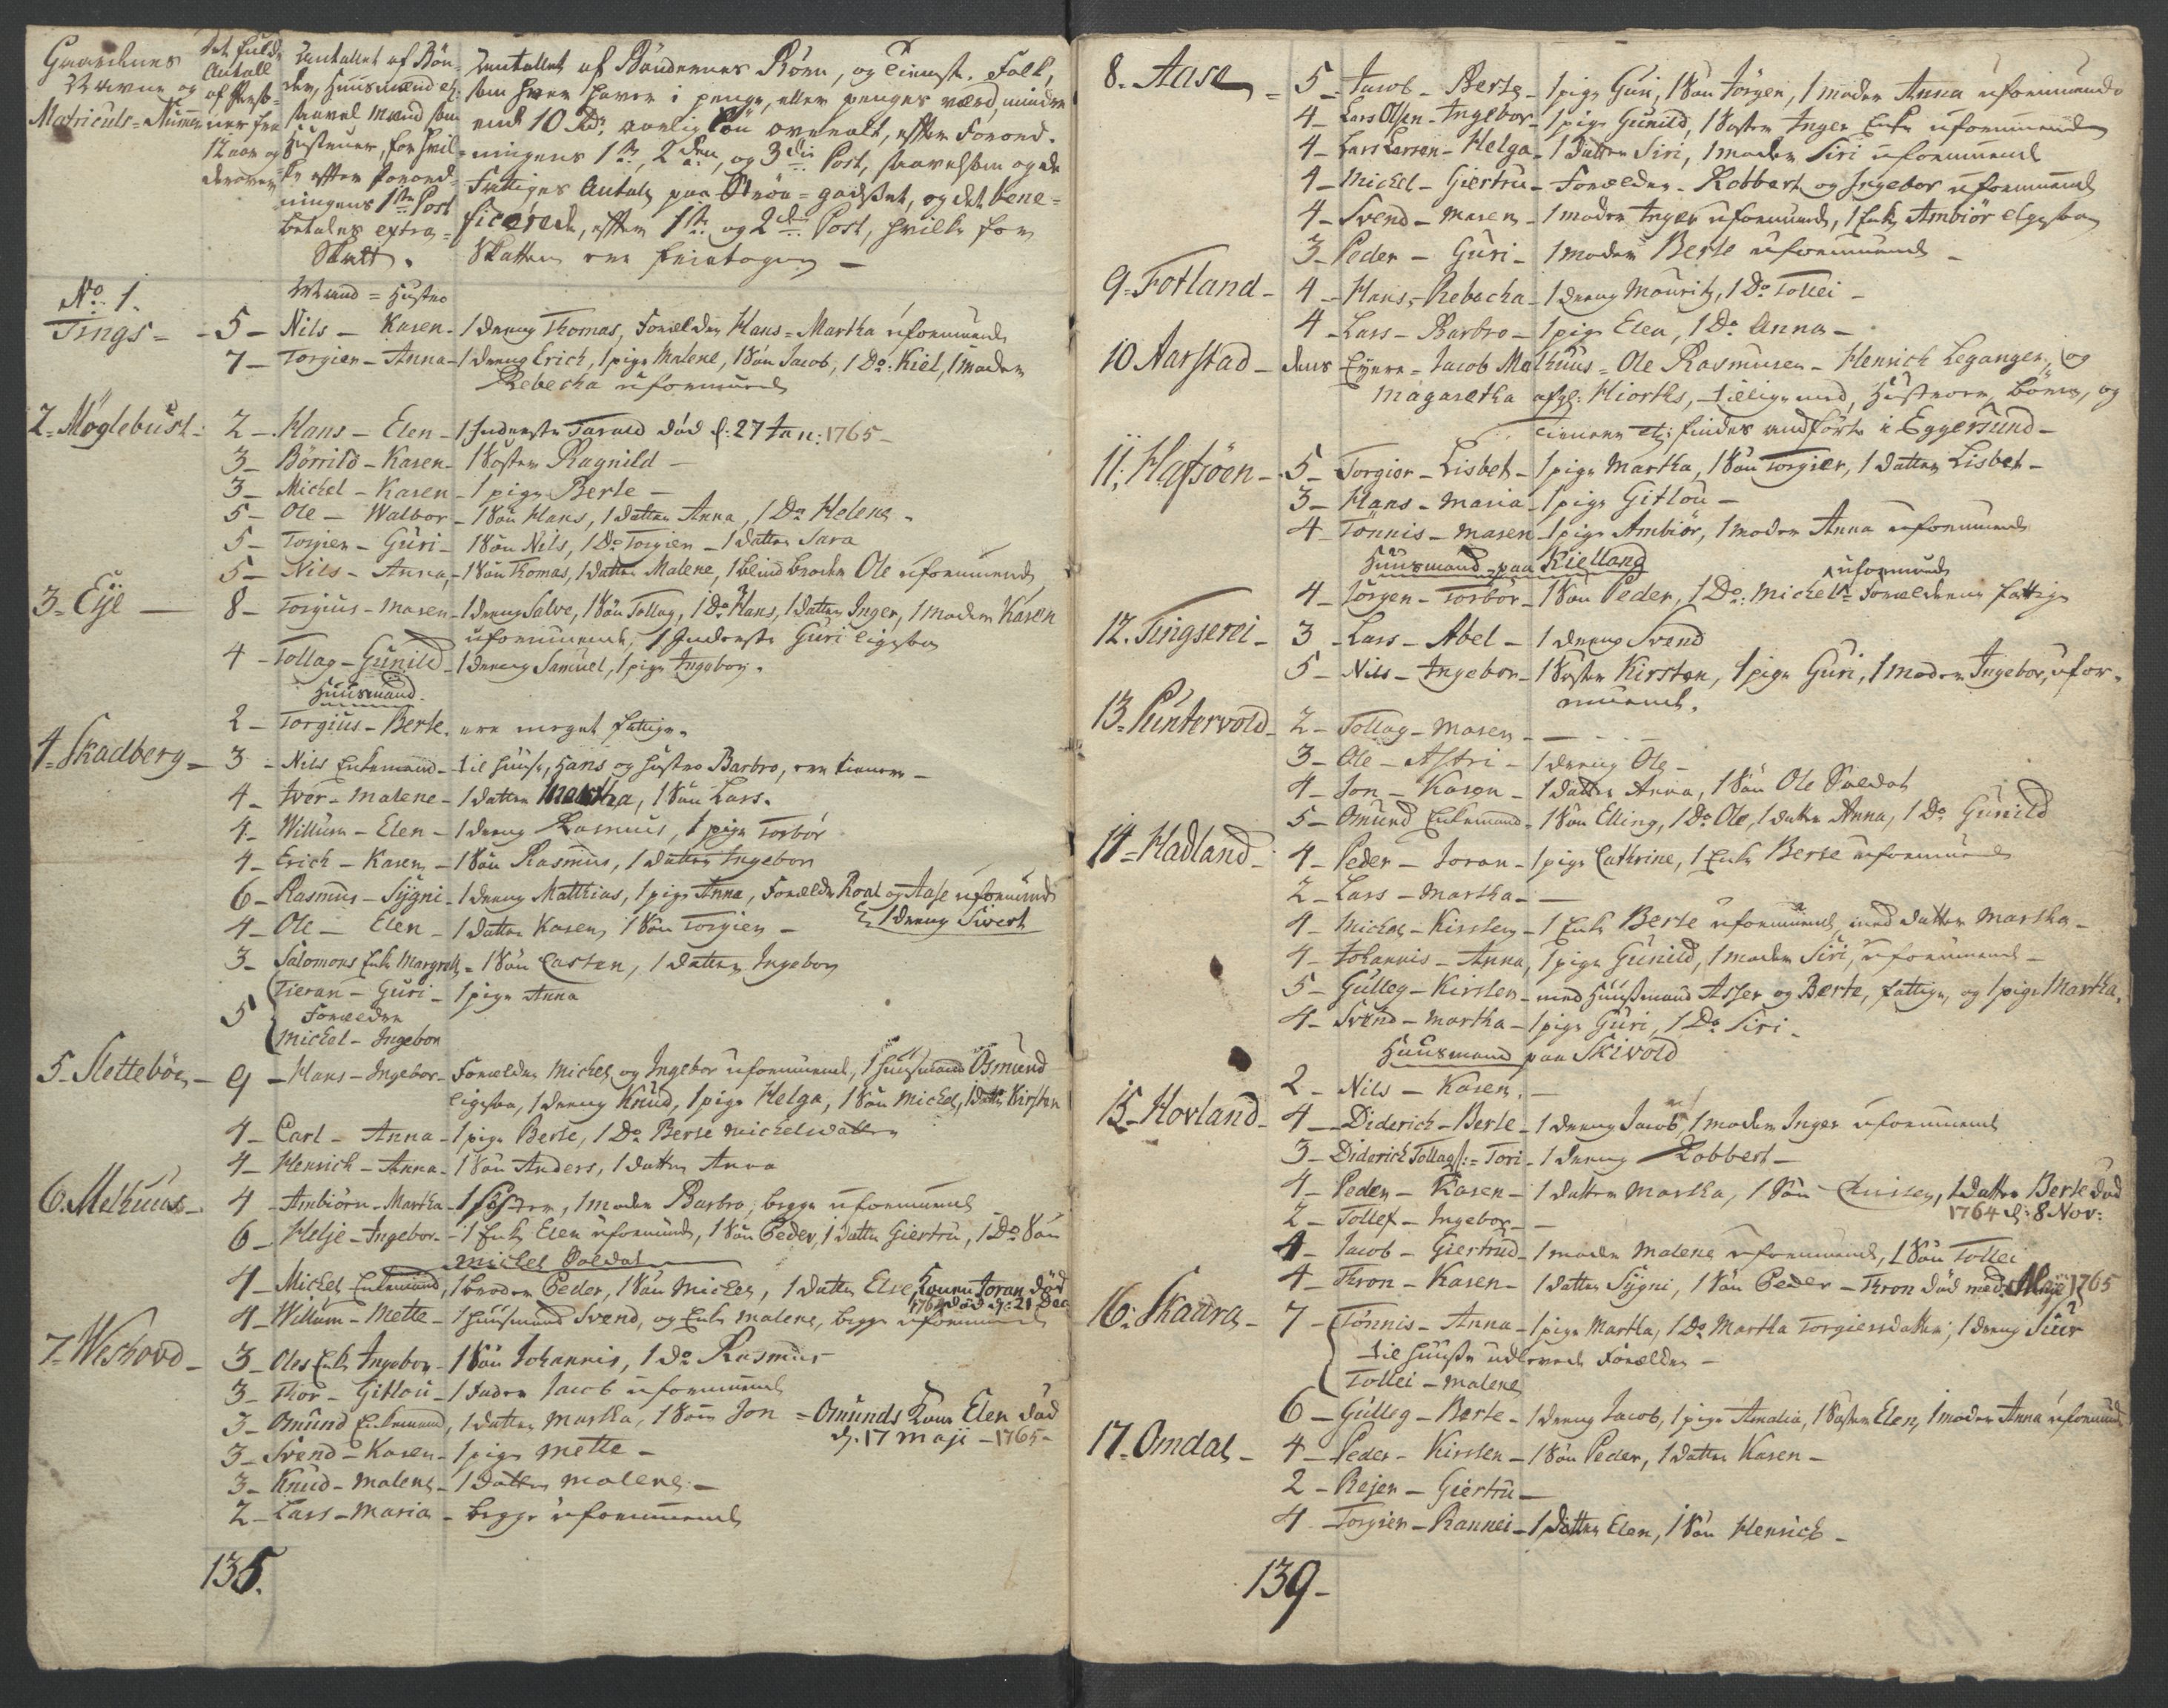 Gaardenes
Navne og
Matriculs-Numer
Det fulde
Antall
af Perso-
ner fra
12 aar og
derover
Antallet af Bøn-
der, Huusmænd etc:
saavel Mænd som
Hustruer, for hvil-
ke efter Forord-
ningens 1ste Post
betales extra-
Skatt.
Antallet af Bøndernes Børn, og Tienist-Folk,
som hver haver i penge, eller penges værd, mindre
end 10 Rdr aarlig Løn overalt, efter Forord-
ningens 1ste, 2den, og 3die Post, saavelsom og de
Fattiges Antal paa Strøe-godset, og det bene-
ficerede, efter 1ste og 2den Post, hvilke for
Skatten ere frietagne -
No 1. Mand = Hustro
Tings - 5 - Nils - Karen - 1 dreng Thomas, Forældre Hans = Martha uformuende
7 - Torgier - Anna - 1 dreng Erich, 1 pige Malene, 1 Søn Jacob, 1 Do: Kiel, 1 moder
Rebecka uformuend
2. Møglebust - 2 - Hans - Elen - 1 Inderste Tarald død d: 27 Jan: 1765 -
3 - Børrild - Karen - 1 Søster Ragnild -
3 - Michel - Karen - 1 pige Berte -
5 - Ole - Walbor - 1 Søn Hans, 1 datter Anna, 1 Do Helena -
5 - Torgier - Guri - 1 Søn Nils, 1 Do Torgier - 1 datter Sara
5 - Nils - Anna, - 1 Søn Thomas, 1 datter Malene, 1 blind broder Ole uformuend
3 - Eÿe - 8 - Torgius - Maren - 1 dreng Salve, 1 Søn Tollag, 1 Do Hans, 1 datter Inger, 1 moder Karen
uformuende, 1 Inderste Guri ligesaa
4 - Tollag - Gunild - 1 dreng Samuel, 1 pige Ingebor.
Huusmand
2 - Torgius - Berte. ere meget fattige.
4 - Skadberg - 3 - Nils Enkemand - til Huuse, Hans og Hustro Barbro, ere tienere -
4 - Iver - Malene - 1 datter Martha, 1 Søn Lars.
4 - Willum - Elen - 1 dreng Rasmus, 1 pige Torbor
4 - Erich - Karen - 1 Søn Rasmus, 1 datter Ingebor
6 - Rasmus - Sÿgni - 1 dreng Matthias, 1 pige Anna, Forældre Roal og Aase uformuend
4 - Ole - Elen - 1 datter Karen, 1 Søn Torgier - 1 dreng Sivert
3 - Salomons Enke Margrete - 1 Søn Casten, 1 datter Ingebor
5 Tieran - Guri - 1 pige Anna
Forældre
Michel - Ingebor
5 - Slettebøe - 9 - Hans - Ingebor - Forældre Michel og Ingebor uformuend, 1 Huusmand Osmund
ligesaa, 1 dreng Knud, 1 pige Helga, 1 Søn Michel, 1 datter Kirsten
4 - Carl - Anna - 1 pige Berte, 1 Do Berte Michelsdatter
4 - Henrich - Anna - 1 Søn Anders, 1 datter Anna
6. Melhuus - 4 - Ambiørn - Martha - 1 Søster, 1 moder Barbro, begge uformuend
6 - Helje - Ingebor - 1 Enke Elen uformuend, 1 Søn Peder, 1 datter Giertru, 1 Do Søn
Michel Soldat
4 - Michel Enkemand, 1 broder Peder, 1 Søn Michel, 1 datter Else, Konen Joran død
1764 død d: 21 Dec
4 - Willum - Mette - 1 Huusmand Svend, og Enke Malene, begge uformuend
7 - Weshovd - 3 - Oles Enke Ingebor - 1 Søn Johannis, 1 Do Rasmus
3 - Thor - Gitlou - 1 Fader Jacob uformuend
3 - Omund Enkemand, 1 datter Martha, 1 Søn Jon - Omunds Kone Elen død
d. 17 Maji - 1765 -
3 - Svend - Karen - 1 pige Mette -
3 - Knud - Malene - 1 datter Malene -
2 - Lars - Maria - begge uformuend
135.
8. Aase - 5 - Jacob - Berte - 1 pige Guri, 1 Søn Jørgen, 1 moder Anna uformuende
4 - Lars Olsen - Ingebor - 1 pige Gunild, 1 Søster Inger Enke uformuend
4 - Lars Larsen - Helga - 1 datter Siri, 1 moder Siri uformuend
4 - Michel - Giertru - Forældre - Robbert og Ingebor uformuend
4 - Svend - Maren - 1 moder Inger uformuend, 1 Enke Ambiør ligesaa
3 - Peder - Guri - 1 moder Berte uformuend -
9 - Fotland - 4 - Hans - Rebecha - 1 dreng Mouritz, 1 Do Tollei -
4 - Lars - Barbro - 1 pige Elen, 1 Do Anna -
10 Aarstad - dens Eÿere - Jacob Melhuus - Ole Rasmusen - Henrich Leganger, og
Magaretha afgl: Hiorths, tilligemed Hustroer, børn, og
tienere etc: findes andført i Eggersund -
11. Hafsøen - 5 - Torgier - Lisbet - 1 pige Martha, 1 Søn Torgier, 1 datter Lisbet -
3 - Hans - Maria - 1 pige Gitlou -
4 - Tønnis - Maren - 1 pige Ambiør, 1 moder Anna uformuend
Huusmand paa Kielland
4 - Jørgen - Torbor - 1 Søn Peder, 1 Do: Michel uformuend - Forældrene fattige
12. Tingserei - 3 - Lars - Abel - 1 dreng Svend
5 - Nils - Ingebor - 1 Søster Kirsten, 1 pige Guri, 1 moder Ingebor, ufor-
muend.
13 - Puntervold - 2 - Tollag - Maren -
3 - Ole - Astri - 1 dreng Ole -
4 - Jon - Karen - 1 datter Anna, 1 Søn Ole Soldat
5 - Omund Enkemand - 1 Søn Elling, 1 Do Ole, 1 datter Anna, 1 Do Gunild
14 - Hadland - 4 - Peder - Joran - 1 pige Cathrine, 1 Enke Berte uformuend
2 - Lars - Martha -
4 - Michel - Kirsten - 1 Enke Berte uformuend, med datter Martha -
4 - Johannis - Anna, 1 pige Gunild, 1 moder Siri, uformuend -
5 - Gulleg - Kirsten - med Huusmand Asser og Berte, fattige, og 1 pige Martha.
4 - Svend - Martha - 1 pige Guri, 1 Do Siri -
Huusmand paa Skivold
2 - Nils - Karen. -
15 - Hovland - 4 - Diderich - Berte - 1 dreng Jacob, 1 moder Inger uformuend
3 - Diderich Tollags: - Tori - 1 dreng Robbert -
4 - Peder - Karen - 1 datter Martha, 1 Søn Christen, 1 datter Berte død
1764 d: 8 Nov:
2 - Tollef - Ingebor -
4 - Jacob - Giertrud - 1 moder Malene uformuend, 1 Søn Tollei
4 - Thron - Karen - 1 datter Sÿgni, 1 Søn Peder - Thron død med: Maji 1765
16. Skaara - 7 - Tønnis - Anna - 1 pige Martha, 1 Do Martha Torgiersdatter, 1 dreng Siur
til Huuse udlevede Forældre -
Tollei - Malene
6 - Gulleg - Berte - 1 dreng Jacob, 1 pige Amalia, 1 Søster Elen, 1 moder Anna uformuend
17 - Omdal - 4 - Peder - Kirsten - 1 Søn Peder, 1 datter Karen -
2 - Rejer - Giertru -
4 - Torgier - Rannei - 1 datter Elen, 1 Søn Henrich -
139 -